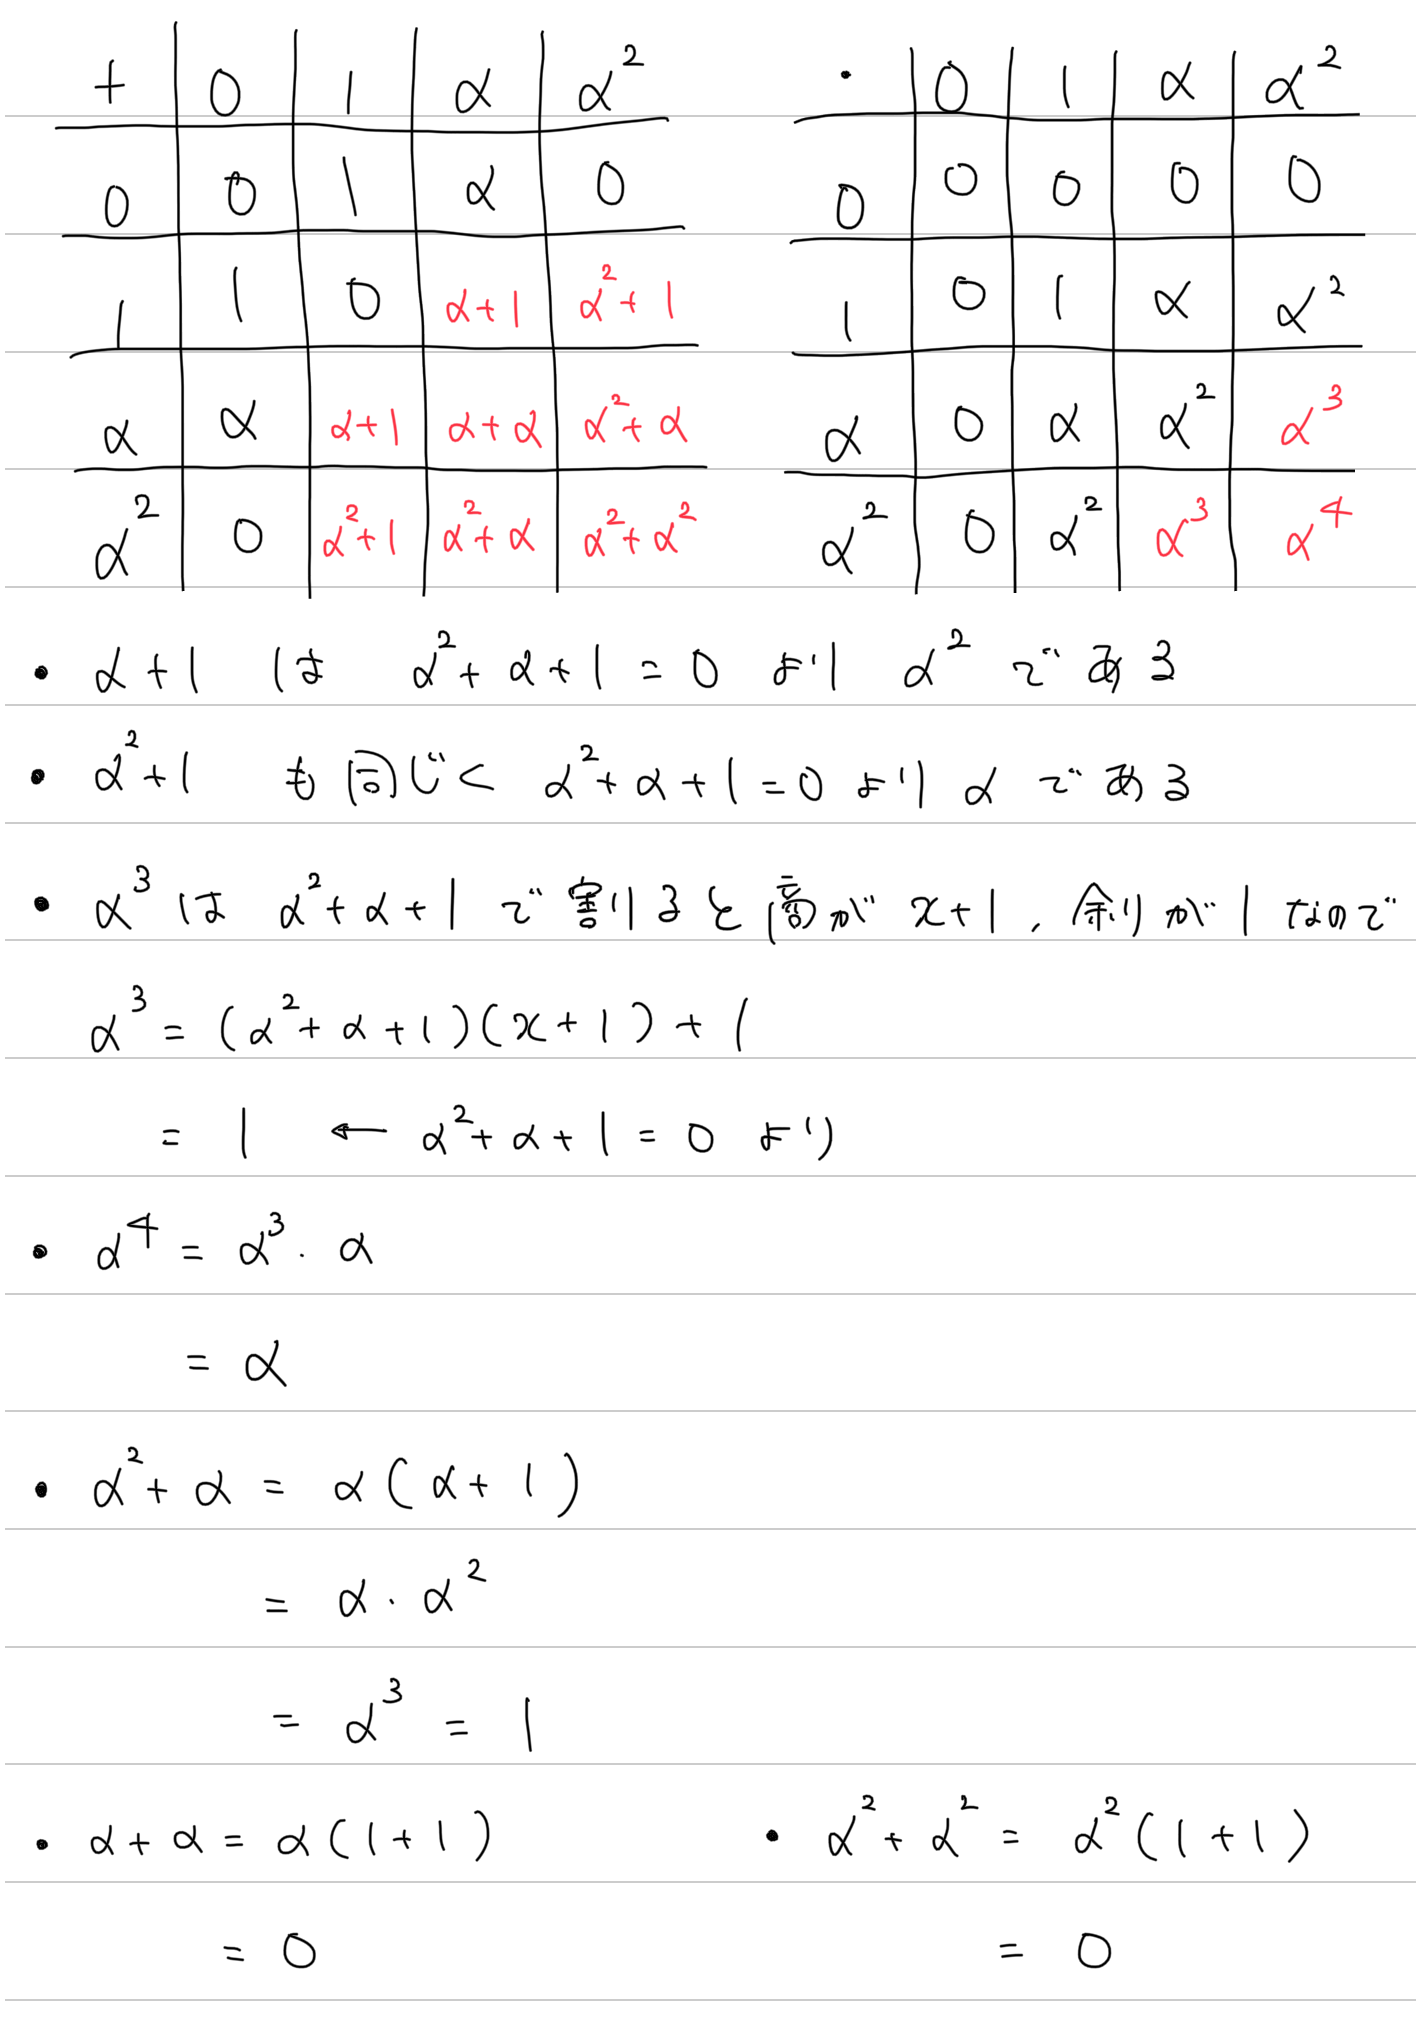 + 0 1 α α² · 0 1 α α²
0 0 1 α 0 0 0 0 0 0
1 1 0 α+1 α²+1 1 0 1 α α²
α α α+1 α+α α²+α α 0 α α² α³
α² 0 α²+1 α²+α α²+α² α² 0 α² α³ α⁴
• α+1 は α²+α+1=0 より α² である
• α²+1 も同じく α²+α+1=0 より α である
• α³ は α²+α+1 で割ると商が x+1, 余りが 1 なので
α³ = (α²+α+1)(x+1)+1
= 1 ← α²+α+1=0 より
• α⁴ = α³・α
= α
• α²+α = α(α+1)
= α・α²
= α³ = 1
• α+α = α(1+1) • α²+α² = α²(1+1)
= 0 = 0